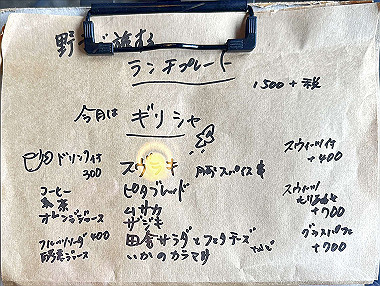 ランチプレート
1500+税
今月は ギリシャ
ドリンク付
300
コーヒー
紅茶
オレンジジュース
フルーツソーダ 400
酵素ジュース
豚 スパイス
ピタブレッド
ムサカ
ザジキ
田舎サラダとフェタチーズ
いかのカラマリ
スウィーツ付
+400
スウィーツ
+700
グラスパフェ
+700